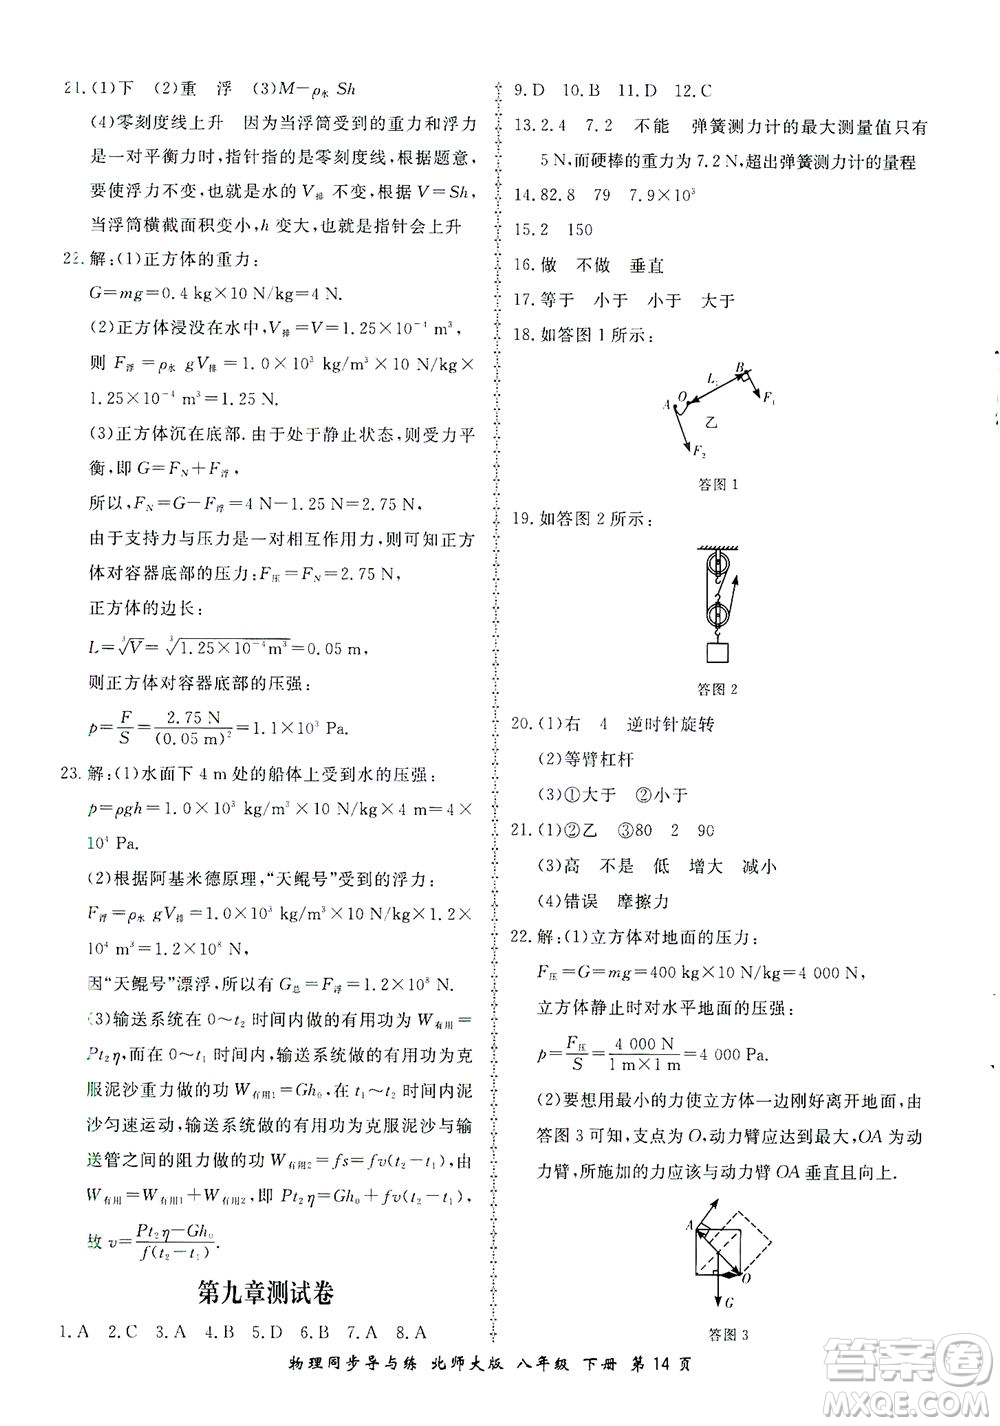 21.(1)下　(2)重　浮　(3)M−ρ水 Sh
(4)零刻度线上升　因为当浮筒受到的重力和浮力
是一对平衡力时,指针指的是零刻度线,根据题意,
要使浮力不变,也就是水的 V排 不变,根据 V=Sh,
当浮筒横截面积变小,h 变大,故指针会上升
22.解:(1)正方体的重力:
G=mg=0.4 kg×10 N/kg=4 N.
(2)正方体浸没在水中,V排=V=1.25×10⁻⁴ m³,
则 F浮=ρ水 gV排=1.0×10³ kg/m³×10 N/kg×
1.25×10⁻⁴ m³=1.25 N.
(3)正方体沉在底部.由于处于静止状态,则受力平
衡,即 G=F_N+F浮,
所以,F_N=G−F浮=4 N−1.25 N=2.75 N,
由于支持力与压力是一对相互作用力,则可知正方
体对容器底部的压力:F压=F_N=2.75 N,
正方体的边长:
L=∛V=∛(1.25×10⁻⁴m³)=0.05 m,
则正方体对容器底部的压强:
p=F/S=2.75 N/(0.05 m)²=1.1×10³ Pa.
23.解:(1)水面下 4 m 处的船体上受到水的压强:
p=ρgh=1.0×10³ kg/m³×10 N/kg×4 m=4×
10⁴ Pa.
(2)根据阿基米德原理,“天鲲号”受到的浮力:
F浮=ρ水 gV排=1.0×10³ kg/m³×10 N/kg×1.2×
10⁴ m³=1.2×10⁸ N,
因“天鲲号”漂浮,所以有 G总=F浮=1.2×10⁸ N.
(3)输送系统在 0～t₂ 时间内做的有用功为 W有用=
Pt₂η,而在 0～t₁ 时间内,输送系统做的有用功为克
服泥沙重力做的功 W有用1=Gh₀,在 t₁～t₂ 时间内泥
沙匀速运动,输送系统做的有用功为克服泥沙与输
送管之间的阻力做的功 W有用2=fs=fv(t₂−t₁),由
W有用=W有用1+W有用2,即 Pt₂η=Gh₀+fv(t₂−t₁),
故 v=(Pt₂η−Gh₀)/f(t₂−t₁).
第九章测试卷
1.A　2.C　3.A　4.B　5.D　6.B　7.A　8.A
9.D　10.B　11.D　12.C
13.2.4　7.2　不能　弹簧测力计的最大测量值只有
5 N,而硬棒的重力为 7.2 N,超出弹簧测力计的量程
14.82.8　79　7.9×10³
15.2　150
16.做　不做　垂直
17.等于　小于　小于　大于
18.如答图 1 所示:
A O L₁ B F₁ 乙 F₂
答图 1
19.如答图 2 所示:
答图 2
20.(1)右　4　逆时针旋转
(2)等臂杠杆
(3)①大于　②小于
21.(1)②乙　③80　2　90
(3)高　不是　低　增大　减小
(4)错误　摩擦力
22.解:(1)立方体对地面的压力:
F压=G=mg=400 kg×10 N/kg=4 000 N,
立方体静止时对水平地面的压强:
p=F压/S=4 000 N/1 m×1 m=4 000 Pa.
(2)要想用最小的力使立方体一边刚好离开地面,由
答图 3 可知,支点为 O,动力臂应达到最大,OA为动
力臂,所施加的力应该与动力臂 OA 垂直且向上.
A O G
答图 3
物理同步导与练 北师大版 八年级 下册 第 14 页
答案圈
MXQE.COM